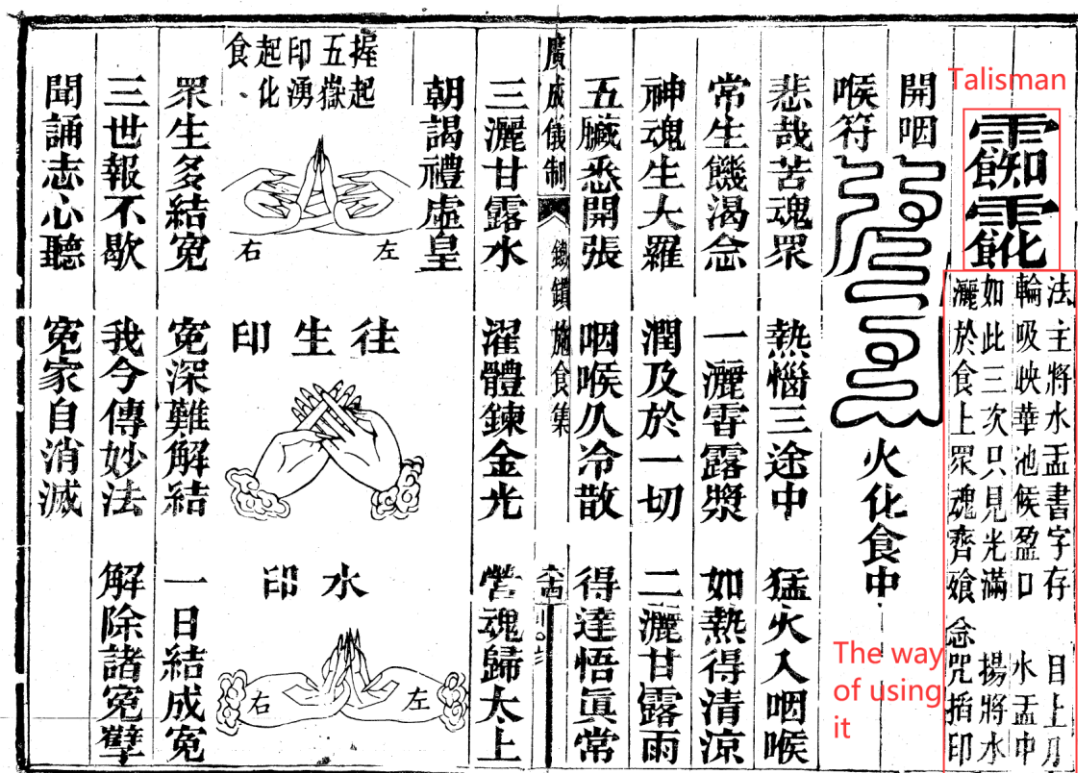 Talisman
法主將水盂書字存 目上
輪吸映華池候盈口 水盂中
如此三次只見光滿 揚將水
灑於食上眾魂齊飧 念咒掐印
The way
of using
it
開咽
喉符
火化食中
悲哉苦魂眾 熱惱三途中 猛火入咽喉
常生饑渴念 一灑䨒露漿 如熱得清涼
神魂生大羅 潤及於一切 二灑甘露雨
五臟悉開張 咽喉久冷散 得達悟眞常
廣成儀制 鐵鎖施食集
三灑甘露水 濯體鍊金光 營魂歸太上
朝謁禮虛皇
握起
五嶽
印湧
起化
食
左 右
往生印
水印
左 右
眾生多結冤 冤深難解結 一日結成冤
三世報不歇 我今傳妙法 解除諸冤孽
聞誦志心聽 冤家自消滅